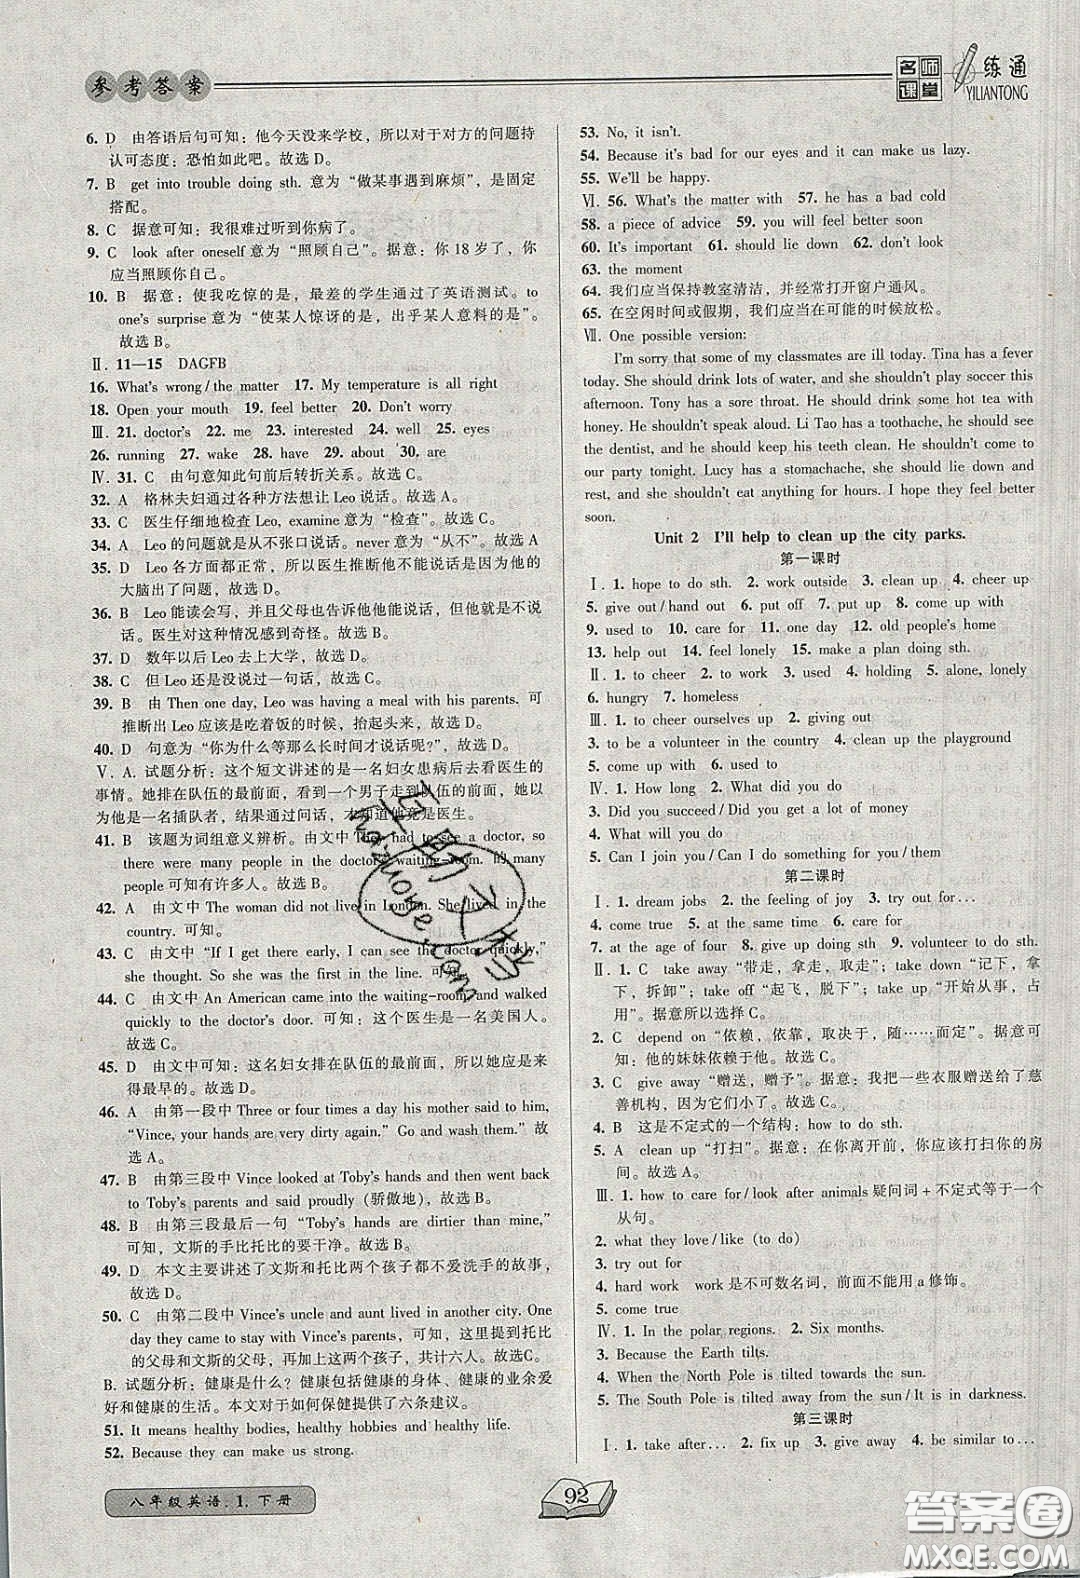 参考答案
名师课堂 一练通
YILIANTONG
6. D 由答语后句可知：他今天没来学校，所以对于对方的问题持
认可态度：恐怕如此吧。故选 D。
7. B get into trouble doing sth. 意为“做某事遇到麻烦”，是固定
搭配。
8. C 据意可知：我很难过听到你病了。
9. C look after oneself 意为“照顾自己”。据意：你 18 岁了，你
应当照顾你自己。
10. B 据意：使我吃惊的是，最差的学生通过了英语测试。to
one's surprise 意为“使某人惊讶的是，出乎某人意料的是”。
故选 B。
Ⅱ. 11—15 DAGFB
16. What's wrong / the matter 17. My temperature is all right
18. Open your mouth 19. feel better 20. Don't worry
Ⅲ. 21. doctor's 22. me 23. interested 24. well 25. eyes
26. running 27. wake 28. have 29. about 30. are
Ⅳ. 31. C 由句意知此句前后转折关系。故选 C。
32. A 格林夫妇通过各种方法想让 Leo 说话。故选 A。
33. C 医生仔细地检查 Leo, examine 意为“检查”。故选 C。
34. A Leo 的问题就是从不张口说话。never 意为“从不”。故选 A
35. D Leo 各方面都正常，所以医生推断他不能说话是因为他的
大脑出了问题，故选 D。
36. B Leo 能读会写，并且父母也告诉他他能说话，但他就是不说
话。医生对这种情况感到奇怪。故选 B。
37. D 数年以后 Leo 去上大学，故选 D。
38. C 但 Leo 还是没说一句话，故选 C。
39. B 由 Then one day, Leo was having a meal with his parents. 可
推断出 Leo 应该是吃着饭的时候，抬起头来，故选 B。
40. D 句意为“你为什么等那么长时间才说话呢?”，故选 D。
Ⅴ. A. 试题分析：这个短文讲述的是一名妇女患病后去看医生的
事情。她排在队伍的最前面，看到一个男子走到队伍的前面，她以
为他是一名插队者，结果通过问话，才知道他竟是医生。
41. B 该题为词组意义辨析。由文中 They had to see a doctor, so
there were many people in the doctor's waiting-room. many
people 可知有许多人。故选 B。
42. A 由文中 The woman did not live in London. She lived in the
country. 可知。故选 A。
43. C 由文中 “If I get there early, I can see the doctor quickly,”
she thought. So she was the first in the line. 可知。
44. C 由文中 An American came into the waiting-room and walked
quickly to the doctor's door. 可知：这个医生是一名美国人。
故选 C。
45. D 由文中可知：这名妇女排在队伍的最前面，所以她应是来
得最早的。故选 D。
46. A 由第一段中 Three or four times a day his mother said to him,
“Vince, your hands are very dirty again.” Go and wash them.” 故
选 A。
47. B 由第三段中 Vince looked at Toby's hands and then went back
to Toby's parents and said proudly (骄傲地)，可知。故选 B。
48. B 由第三段最后一句 “Toby's hands are dirtier than mine,”
可知，文斯的手比托比的要干净。故选 B。
49. D 本文主要讲述了文斯和托比两个孩子都不爱洗手的故事，
故选 D。
50. C 由第二段中 Vince's uncle and aunt lived in another city. One
day they came to stay with Vince's parents，可知，这里提到托比
的父母和文斯的父母，再加上这两个孩子，共计六人。故选C。
B. 试题分析：健康是什么？健康包括健康的身体、健康的业余爱
好和健康的生活。本文对于如何保健提供了六条建议。
51. It means healthy bodies, healthy hobbies and healthy life.
52. Because they can make us strong.
53. No, it isn't.
54. Because it's bad for our eyes and it can make us lazy.
55. We'll be happy.
Ⅵ. 56. What's the matter with 57. he has a bad cold
58. a piece of advice 59. you will feel better soon
60. It's important 61. should lie down 62. don't look
63. the moment
64. 我们应当保持教室清洁，并经常打开窗户通风。
65. 在空闲时间或假期，我们应当在可能的时候放松。
Ⅶ. One possible version:
I'm sorry that some of my classmates are ill today. Tina has a fever
today. She should drink lots of water, and she shouldn't play soccer this
afternoon. Tony has a sore throat. He should drink some hot tea with
honey. He shouldn't speak aloud. Li Tao has a toothache, he should see
the dentist, and he should keep his teeth clean. He shouldn't come to
our party tonight. Lucy has a stomachache, she should lie down and
rest, and she shouldn't eat anything for hours. I hope they feel better
soon.
Unit 2 I'll help to clean up the city parks.
第一课时
Ⅰ. 1. hope to do sth. 2. work outside 3. clean up 4. cheer up
5. give out / hand out 6. put off 7. put up 8. come up with
9. used to 10. care for 11. one day 12. old people's home
13. help out 14. feel lonely 15. make a plan doing sth.
Ⅱ. 1. to cheer 2. to work 3. used 4. holding 5. alone, lonely
6. hungry 7. homeless
Ⅲ. 1. to cheer ourselves up 2. giving out
3. to be a volunteer in the country 4. to clean up the playground
5. come up with 6. used to
Ⅳ. 1. How long 2. What did you do
3. Did you succeed / Did you get a lot of money
4. What will you do
5. Can I join you / Can I do something for you / them
第二课时
Ⅰ. 1. dream jobs 2. the feeling of joy 3. try out for...
4. come true 5. at the same time 6. care for
7. at the age of four 8. give up doing sth 9. volunteer to do sth.
Ⅱ. 1. C take away “带走，拿走，取走”；take down “记下，拿
下，拆卸”；take off “起飞，脱下”；take up “开始从事，占
用”。据意所以选择 C。
2. C depend on “依赖，依靠，取决于，随……而定”。据意可
知：他的妹妹依赖于他。故选 C。
3. C give away “赠送，赠予”。据意：我把一些衣服赠送给了慈
善机构，因为它们小了。故选 C。
4. B 这是不定式的一个结构：how to do sth.
5. A clean up “打扫”。据意：在你离开前，你应该打扫你的房
间。故选 A。
Ⅲ. 1. how to care for / look after animals 疑问词 + 不定式等于一个
从句。
2. what they love / like (to do)
3. try out for
4. hard work work 是不可数名词，前面不能用 a 修饰。
5. come true
Ⅳ. 1. In the polar regions. 2. Six months.
3. Because the Earth tilts.
4. When the North Pole is tilted towards the sun.
5. The South Pole is tilted away from the sun / It is in darkness.
第三课时
Ⅰ. 1. take after... 2. fix up 3. give away 4. be similar to...
八年级英语. 1. 下册
92
互助文档
hdzuoye.com
答案圈
MXQE.COM